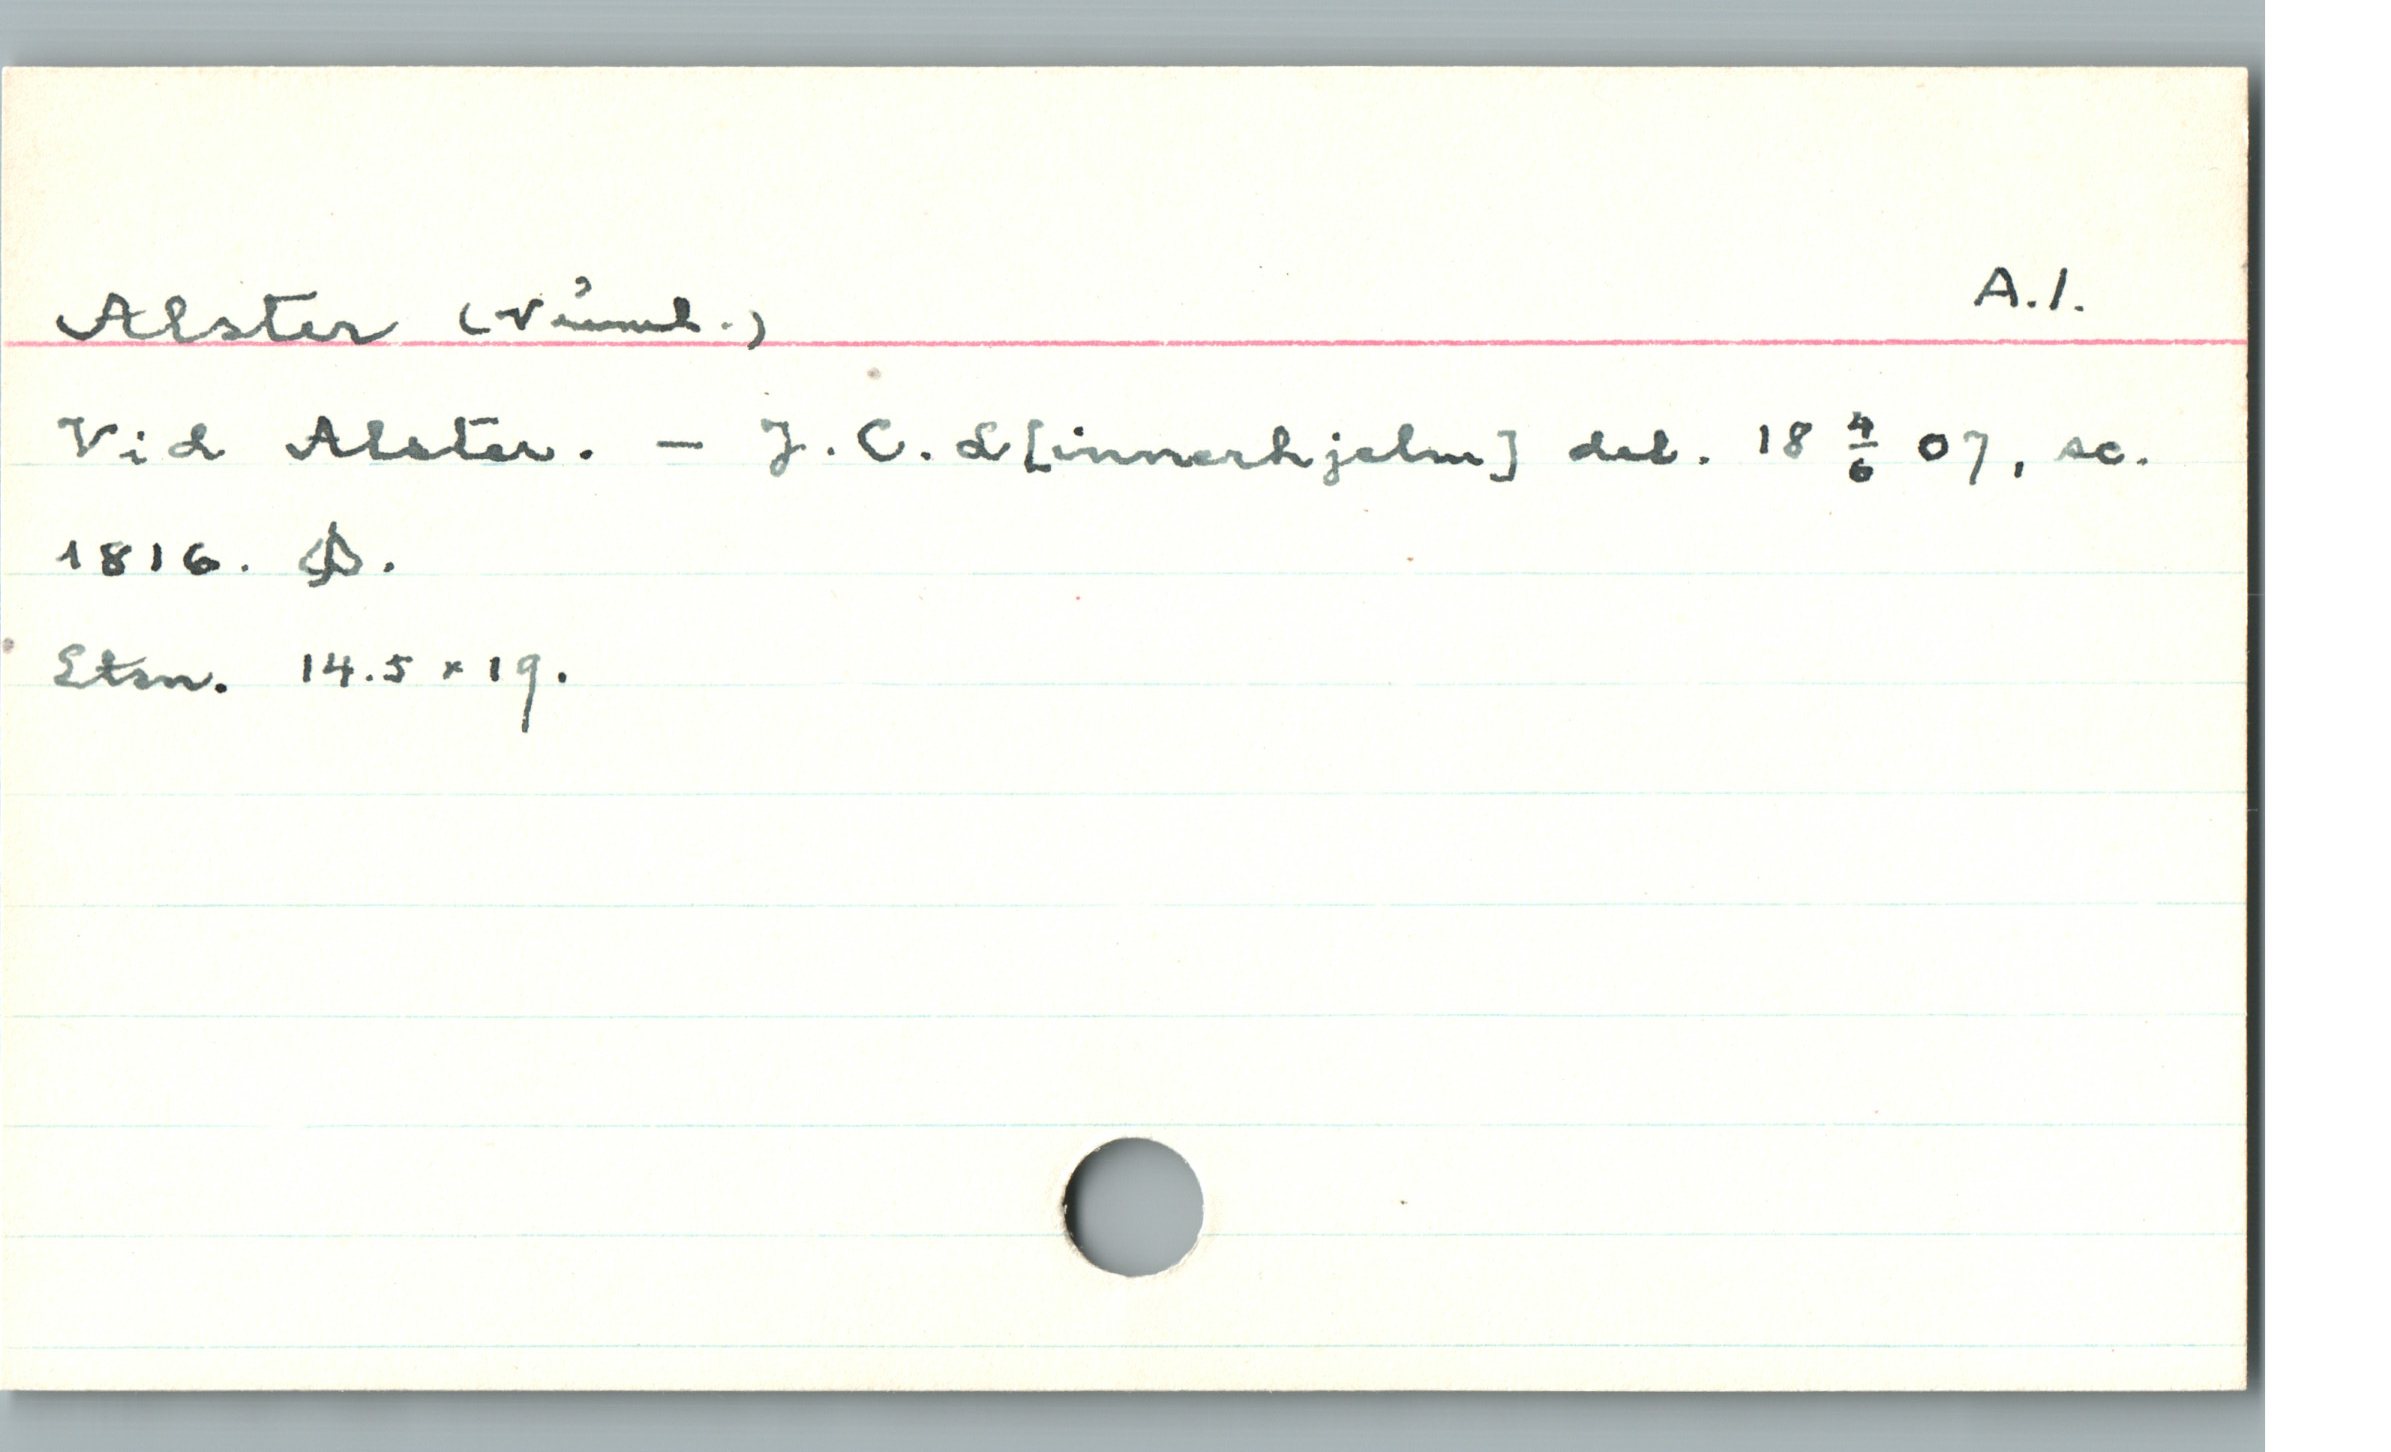 Alster (Värml.) A.1.
Vid Alster. — J. C. L[innerhjelm] del. 18 4/6 07, sc.
1816.
Etsn. 14.5 × 19.